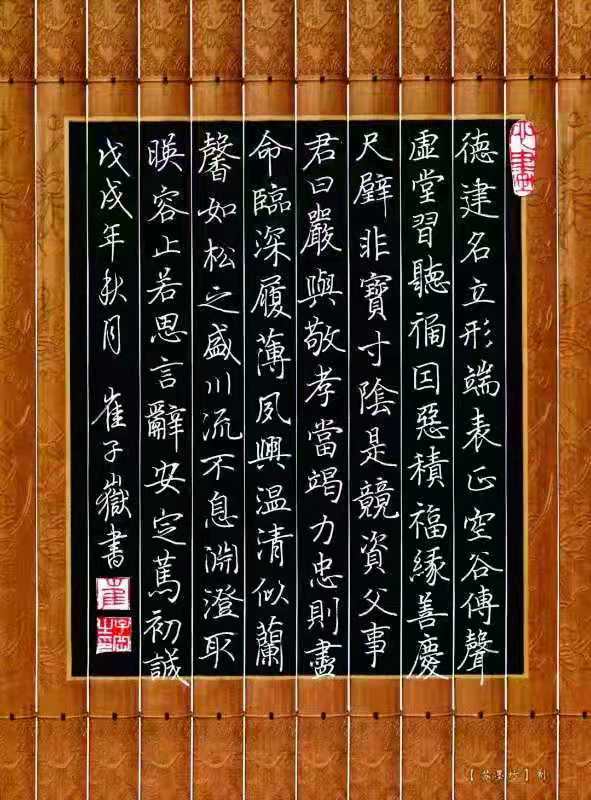 德建名立形端表正空谷傳聲
虛堂習聽禍因惡積福緣善慶
尺璧非寶寸陰是競資父事
君曰嚴與敬孝當竭力忠則盡
命臨深履薄夙興温清似蘭
馨如松之盛川流不息淵澄取
暎容止若思言辭安定篤初誠
戊戌年秋月 崔子嶽書